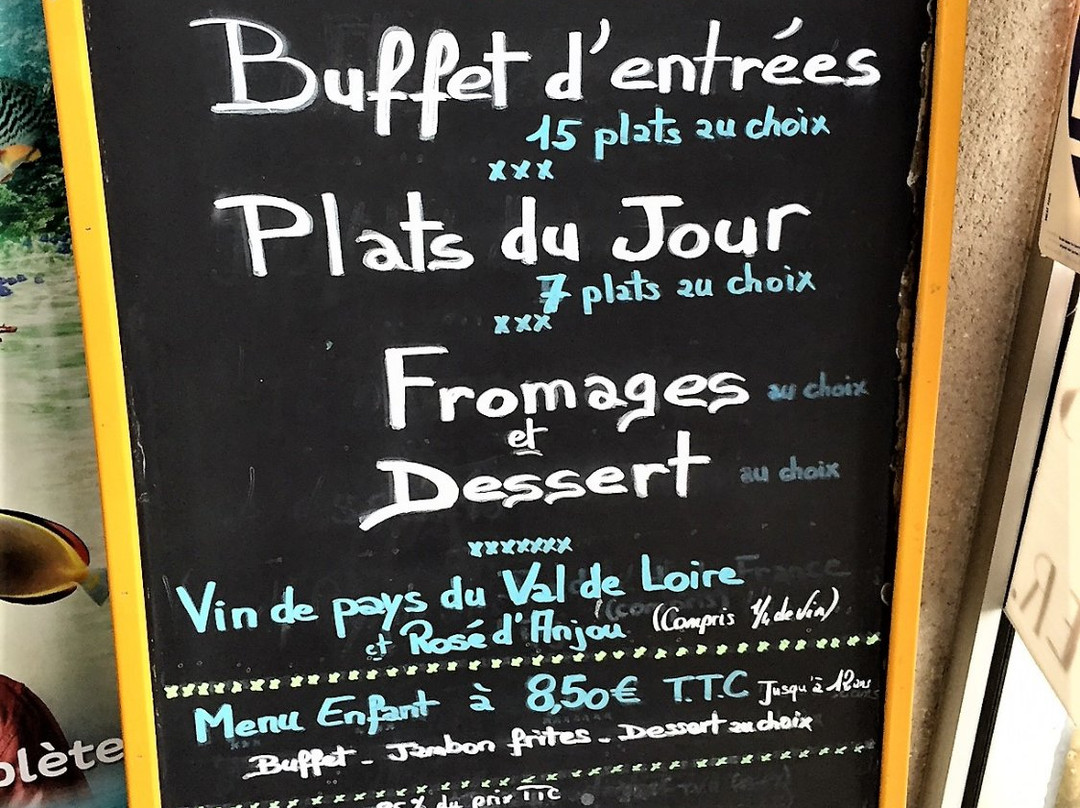 Buffet d'entrées
15 plats au choix
xxx
Plats du Jour
7 plats au choix
xxx
Fromages au choix
et
Dessert au choix
xxxxxxx
Vin de pays du Val de Loire
et Rosé d'Anjou (Compris 1/4 de vin)
Menu Enfant à 8,50€ T.T.C Jusqu'à 12 ans
Buffet - Jambon frites - Dessert au choix
du prix TTC
plète